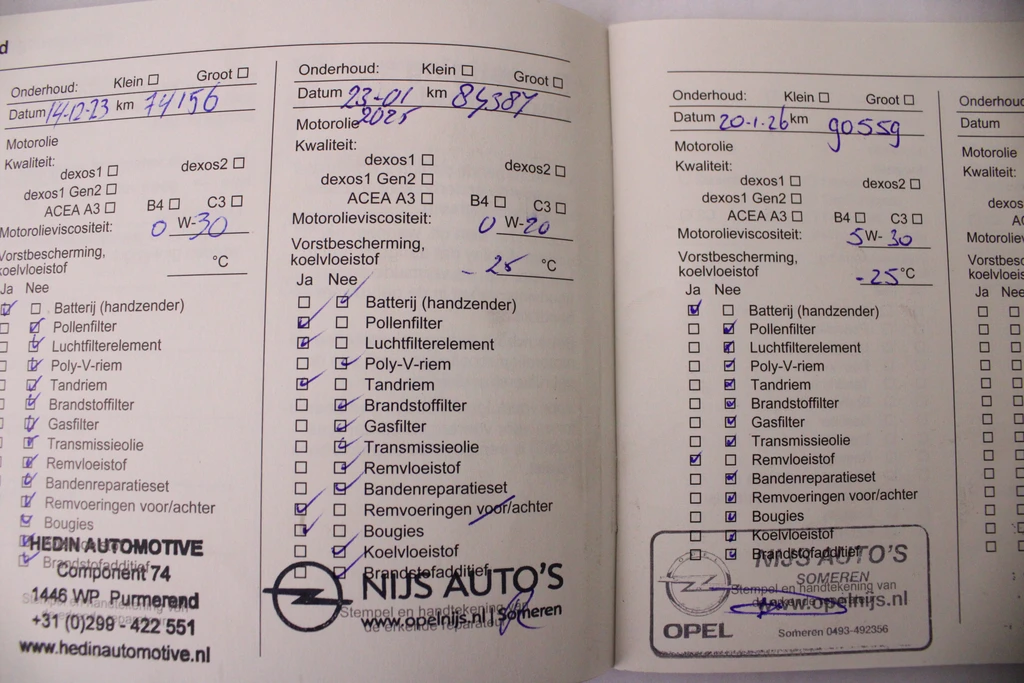 d
Onderhoud: Klein Groot
Datum 14-12-23 km 74156
Motorolie
Kwaliteit:
dexos1 dexos2
dexos1 Gen2
ACEA A3 B4 C3
Motorolieviscositeit: 0 W-30
Vorstbescherming,
koelvloeistof °C
Ja Nee
Batterij (handzender)
Pollenfilter
Luchtfilterelement
Poly-V-riem
Tandriem
Brandstoffilter
Gasfilter
Transmissieolie
Remvloeistof
Bandenreparatieset
Remvoeringen voor/achter
Bougies
Brandstofadditief
HEDIN AUTOMOTIVE
Component 74
1446 WP Purmerend
+31 (0)299 - 422 551
www.hedinautomotive.nl
Onderhoud: Klein Groot
Datum 23-01 km 84387
2025
Motorolie
Kwaliteit:
dexos1 dexos2
dexos1 Gen2
ACEA A3 B4 C3
Motorolieviscositeit: 0 W-20
Vorstbescherming,
koelvloeistof - 25 °C
Ja Nee
Batterij (handzender)
Pollenfilter
Luchtfilterelement
Poly-V-riem
Tandriem
Brandstoffilter
Gasfilter
Transmissieolie
Remvloeistof
Bandenreparatieset
Remvoeringen voor/achter
Bougies
Koelvloeistof
Brandstofadditief
NIJS AUTO'S
Stempel en handtekening van
www.opelnijs.nl | Someren
de erkende reparateur
Onderhoud: Klein Groot
Datum 20-1-26 km 90559
Motorolie
Kwaliteit:
dexos1 dexos2
dexos1 Gen2
ACEA A3 B4 C3
Motorolieviscositeit: 5 W- 30
Vorstbescherming,
koelvloeistof -25 °C
Ja Nee
Batterij (handzender)
Pollenfilter
Luchtfilterelement
Poly-V-riem
Tandriem
Brandstoffilter
Gasfilter
Transmissieolie
Remvloeistof
Bandenreparatieset
Remvoeringen voor/achter
Bougies
Koelvloeistof
Brandstofadditief
NIJS AUTO'S
SOMEREN
Stempel en handtekening van
www.opelnijs.nl
OPEL Someren 0493-492356
Onderhoud
Datum
Motorolie
Kwaliteit:
dexos
AC
Motoroliev
Vorstbesc
koelvloeis
Ja Nee